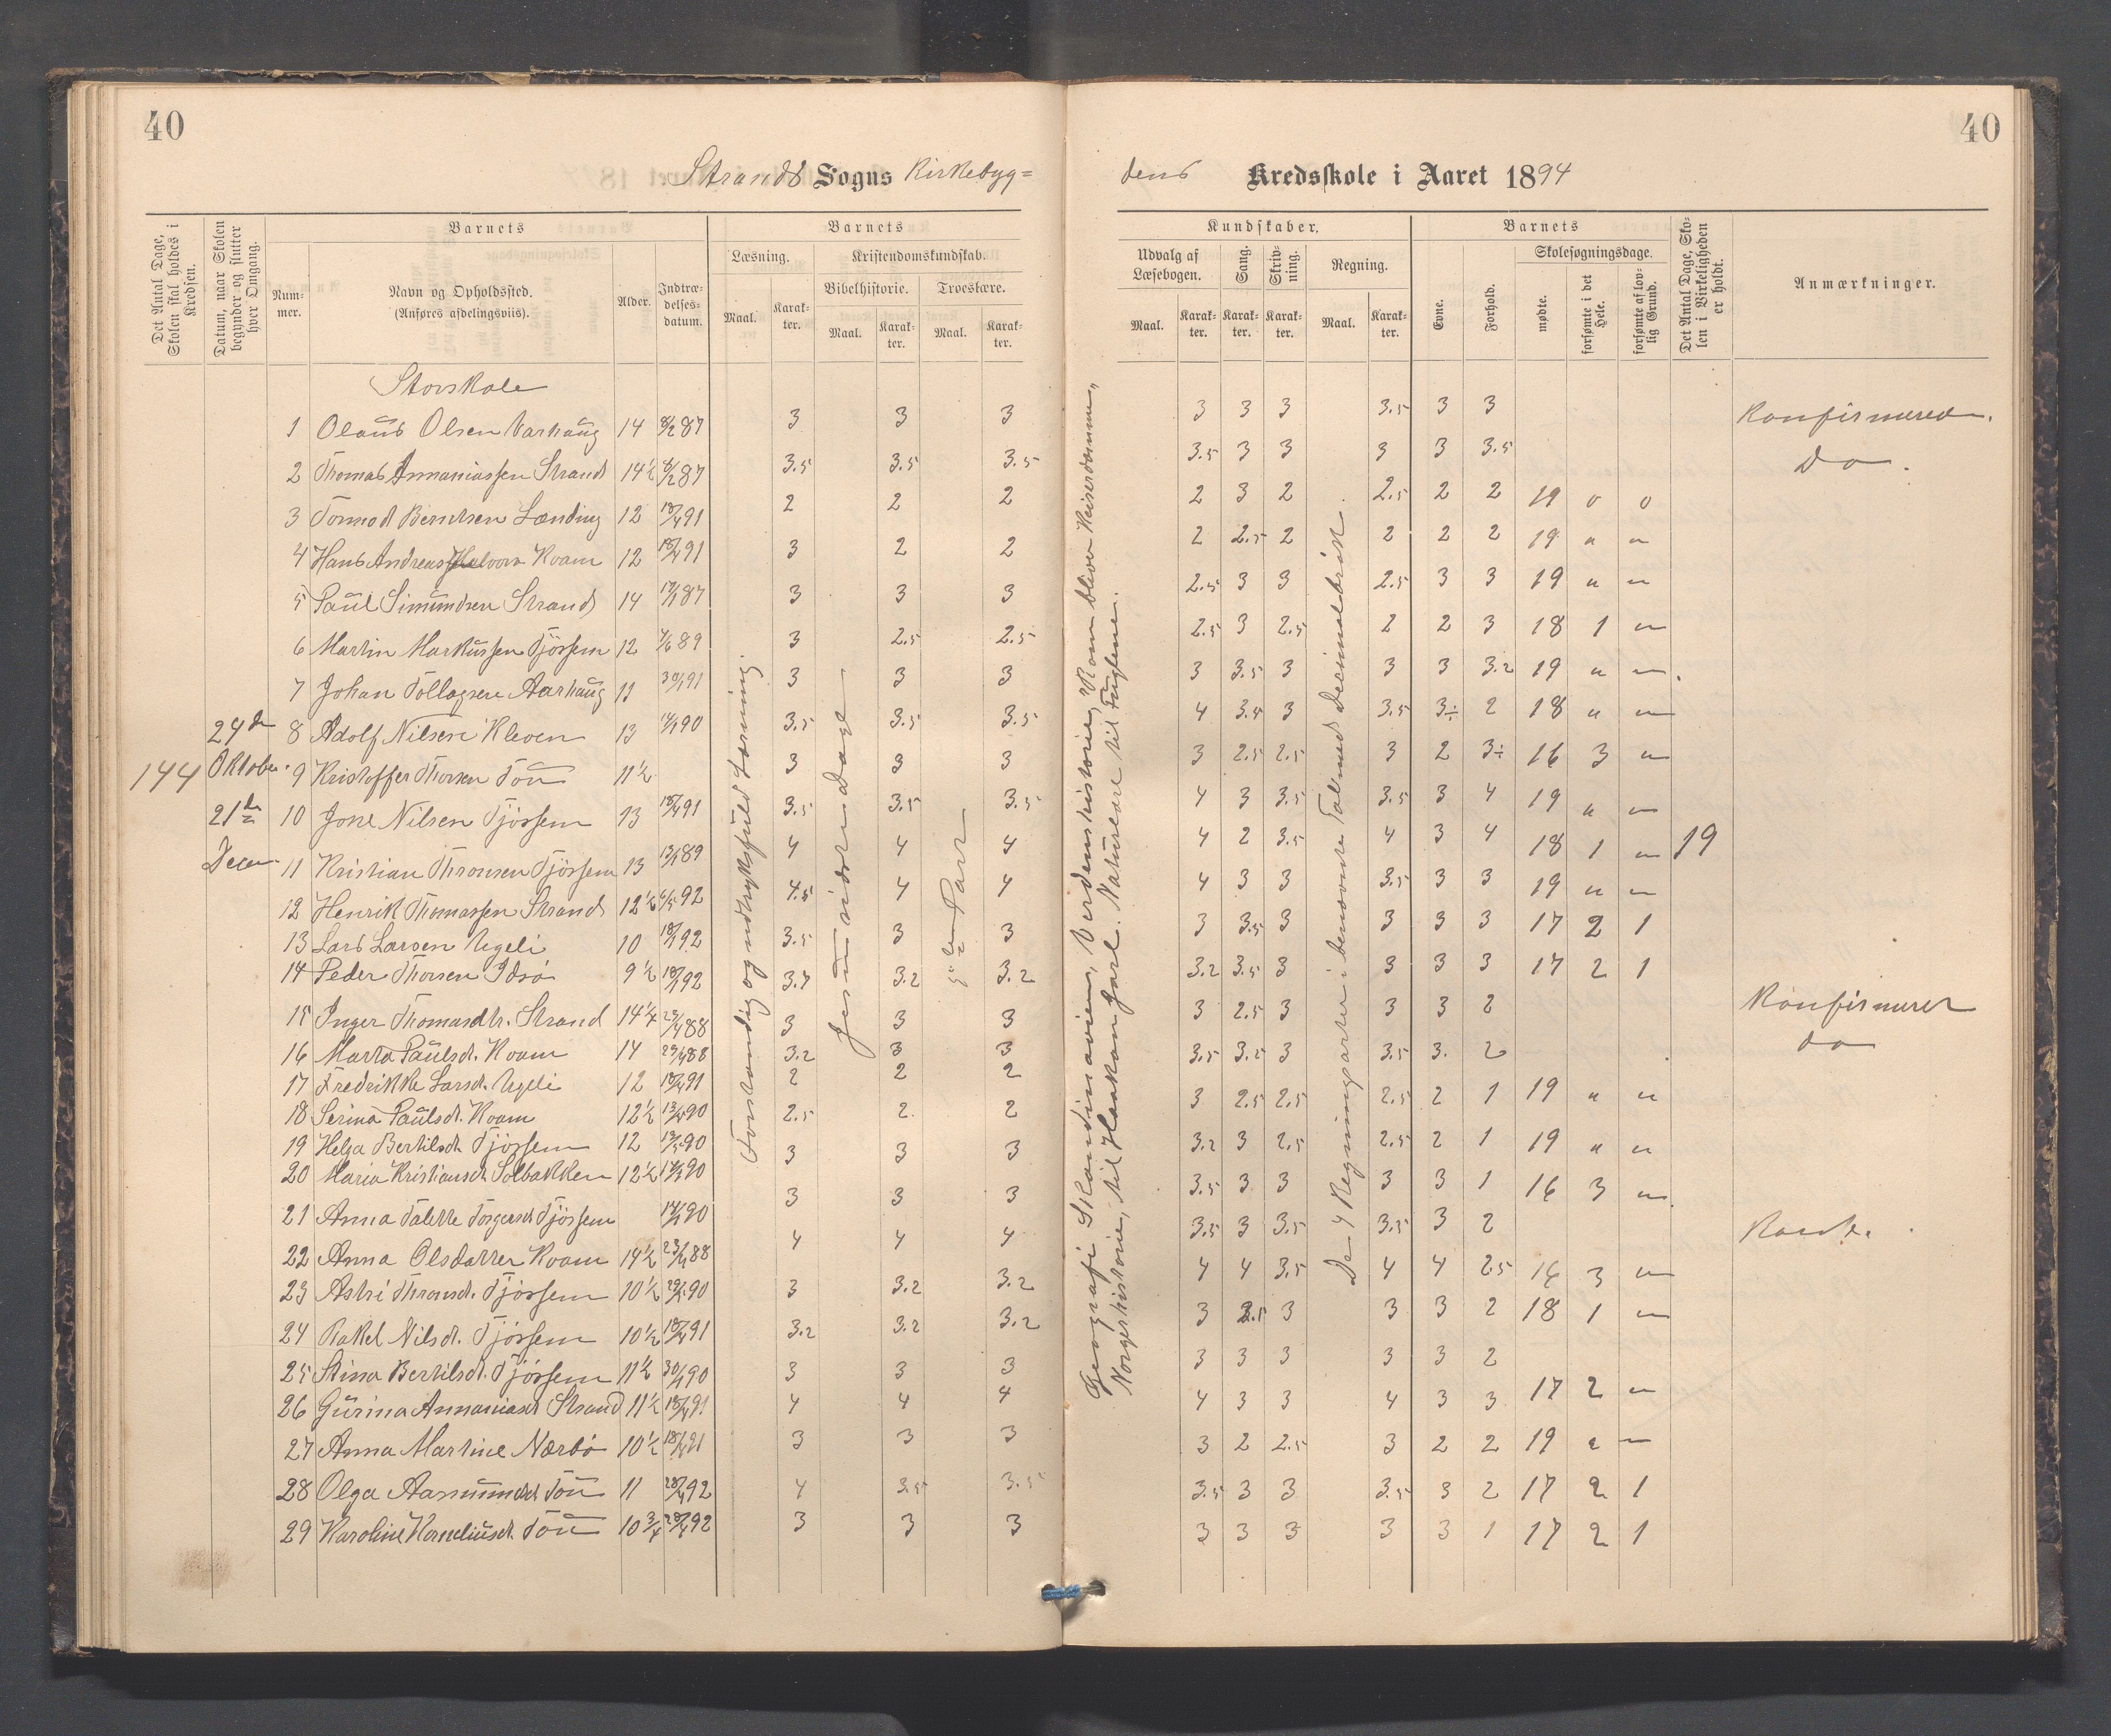 40
Strands Sogns Kirkebyg=
Det Antal Dage, Skolen skal holdes i Kredsen.
Datum, naar Skolen begynder og slutter hver Omgang.
Barnets
Num-mer.
Navn og Opholdssted.
(Anføres afdelingsviis).
Alder.
Indtræ-delses-datum.
Barnets
Læsning.
Kristendomskundskab.
Bibelhistorie.
Troeslære.
Maal.
Karak-ter.
Maal.
Karak-ter.
Maal.
Karak-ter.
Storskole
1 Olaus Olsen Varhaug 14 8/2 87 3 3 3
2 Thomas Annaniassen Strand 14½ 8/2 87 3.5 3.5 3.5
3 Tormod Berntsen Lænding 12 18/4 91 2 2 2
4 Hans Andreas Kvam 12 18/4 91 3 2 2
5 Paul Simundsen Strand 14 87 3 3 3
6 Martin Markussen Tjössem 12 4/6 89 3 2.5 2.5
7 Johan Tollagsen Aarhaug 11 30/1 91 3 3 3
24de 8 Adolf Nilsen Kleven 13 90 3.5 3.5 3.5
144 Oktober. 9 Kristoffer Thorsen Tou 11½ 3 3 3
21de 10 Jone Nilsen Tjössem 13 18/4 91 3.5 3.5 3.5
Decem 11 Kristian Thronsen Tjössem 13 13/1 89 4 4 4
12 Henrik Thomassen Strand 12½ 6/5 92 4.5 4 4
13 Lars Larsen Ugeli 10 92 3.5 3 3
14 Peder Thorsen Idsø 9½ 92 3.7 3.2 3.2
15 Inger Thomasdtr. Strand 14¼ 88 3 3 3
16 Marta Paulsdt. Kvam 14 88 3.2 3 3
17 Fredrikke Larsdt. Ugeli 12 18/4 91 2 2 2
18 Serina Paulsdt. Kvam 12½ 90 2.5 2 2
19 Helga Bertilsdt. Tjössem 12 90 3 3 3
20 Maria Kristiansdt. Solbakken 12½ 90
21 Anna Talette Torgersdt Tjössem 90 3 3 3
22 Anna Olsdatter Kvam 14½ 88 4 4 4
23 Astri Thronsdt. Tjössem 10½ 90 3 3.2 3.2
24 Rakel Nilsdt. Tjössem 10½ 18/4 91 3.2 3.2 3.2
25 Stina Bertilsdt. Tjössem 11½ 30/1 90 3 3 3
26 Gurina Annaniasdt Strand 11½ 18/4 91 4 4 4
27 Anna Martine Nærbö 10½ 18/4 91 3 3 3
28 Olga Aasmundsdt Tou 11 28/4 92 4 3.5 3.5
29 Karoline Korneliusdt. Tou 10¾ 28/4 92 3 3 3
Forstandig og udtryksfuld Læsning.
Jesu sidste Dage
5te Part
40
dens Kredsskole i Aaret 1894
Kundskaber.
Udvalg af Læsebogen.
Sang.
Skriv-ning.
Regning.
Maal.
Karak-ter.
Karak-ter.
Karak-ter.
Maal.
Karak-ter.
Barnets
Evne.
Forhold.
Skolesøgningsdage.
mødte.
forsømte i det Hele.
forsømte af lov-lig Grund.
Det Antal Dage, Sko-len i Virkeligheden er holdt.
Anmærkninger.
Geografi Skandinavien, Verdenshistorie, Rom bliver Keiserdømme,
Norgeshistorie, til Haakon Jarl. Naturlære til Fuglene.
De 4 Regningsarter i benævnte Tal med Decimalbrøk.
3 3 3 3.5 3 3 Konfirmeret.
3.5 3 3 3 3 3.5 Do.
2 3 2 2.5 2 2 19 0 0
2 2.5 2 2 2 2 19 " "
2.5 3 3 2.5 3 3 19 " "
2.5 3 2.5 2 2 3 18 1 "
3 3.5 3 3 3 3.2 19 " "
4 3.5 3 3.5 3÷ 2 18 " "
3 2.5 2.5 3 2 3÷ 16 3 "
4 3 3.5 3.5 3 4 19 " "
4 2 3.5 4 3 4 18 1 " 19
4 3 3 3.5 3 3 19 " "
3 3.5 3 3 3 3 17 2 1
3.2 3.5 3 3 3 3 17 2 1
3 2.5 3 3 3 2 Konfirmeret
3.5 3.5 3 3.5 3. 2 do
3 2.5 2.5 2.5 2 1 19 " "
3.2 3 2.5 2.5 2 1 19 " "
3.5 3 3 3 3 1 16 3 "
3.5 3 3.5 3.5 3 2
4 4 3.5 4 4 2.5 16 3 "
3 2.5 3 3 3 2 18 1 "
3 3 3 3 3 2
4 3 3 4 3 3 17 2 "
3 2 2.5 3 2 2 19 " "
3.5 3 3 3.5 3 2 17 2 1
3 3 3 3 3 1 17 2 1